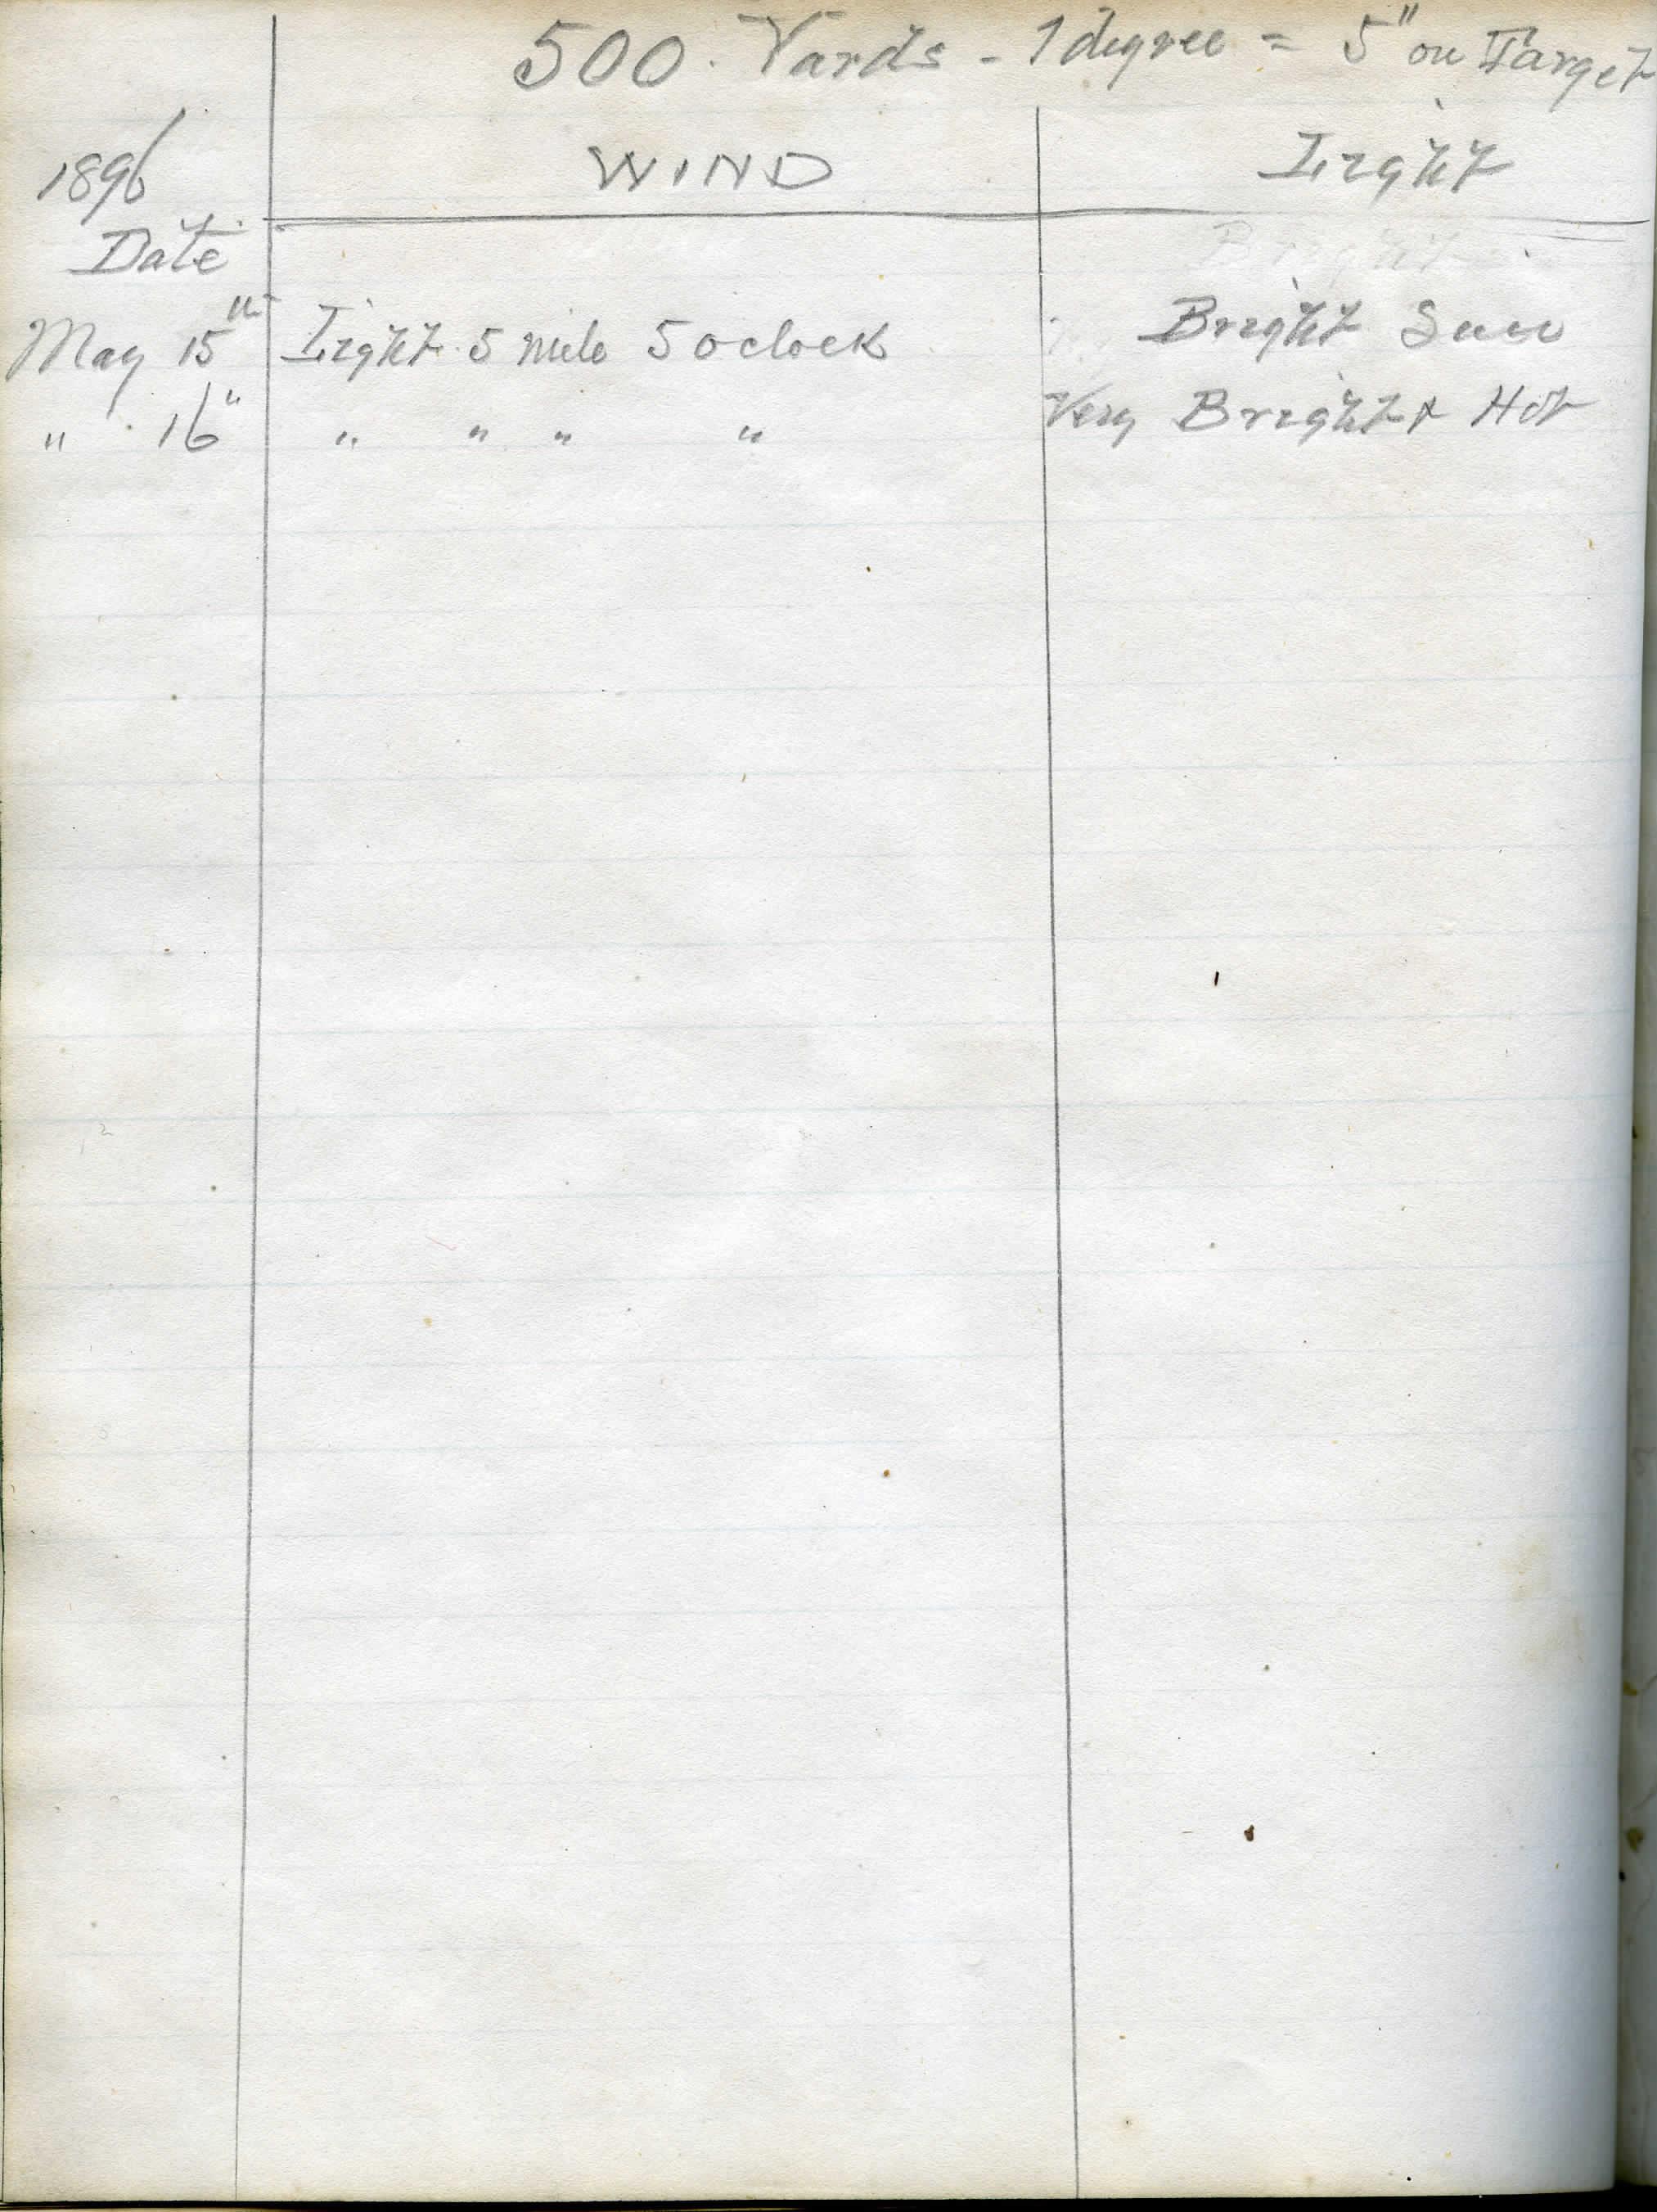 500 Yards - 1 degree = 5" on Target
1896 WIND Light
Date
Bright
May 15th Light 5 mile 5 oclock Bright Sun
" 16" " " " " Very Bright & Hot